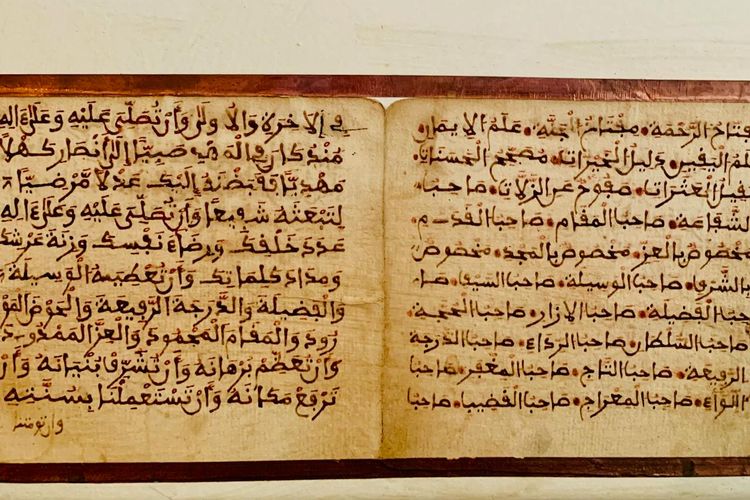 الرحمة مفتاح الجنة علم الإيمان
علم اليقين دليل الخيرات مصحح الحسنات
مقيل العثرات صفوح عن الزلات صاحب
الشفاعة صاحب المقام صاحب القدم
مخصوص بالعز مخصوص بالمجد مخصوص
بالشرف صاحب الوسيلة صاحب السيف صا
حب الفضيلة صاحب الازار صاحب الحجة
صاحب السلطان صاحب الرداء صاحب الدرجة
الرفيعة صاحب التاج صاحب المغفر صاحب
اللواء صاحب المعراج صاحب القضيب صاحب
في الاخرة والاولى وأن تصلي عليه وعلى ءاله
منذ كان في المهد صبيا الى أن صار كهلا
مهديا فقبضته إليك عدلا مرضيا
لتبعثه شفيعا وأن تصلي عليه وعلى ءاله
عدد خلقك ورضاء نفسك وزنة عرشك
ومداد كلماتك وأن تعطيه الوسيلة
والفضيلة والدرجة الرفيعة والحوض المو
رود والمقام المحمود والعز الممدود
وأن تعظم برهانه وأن تشرف بنيانه وأن
ترفع مكانه وأن تستعملنا بسنته